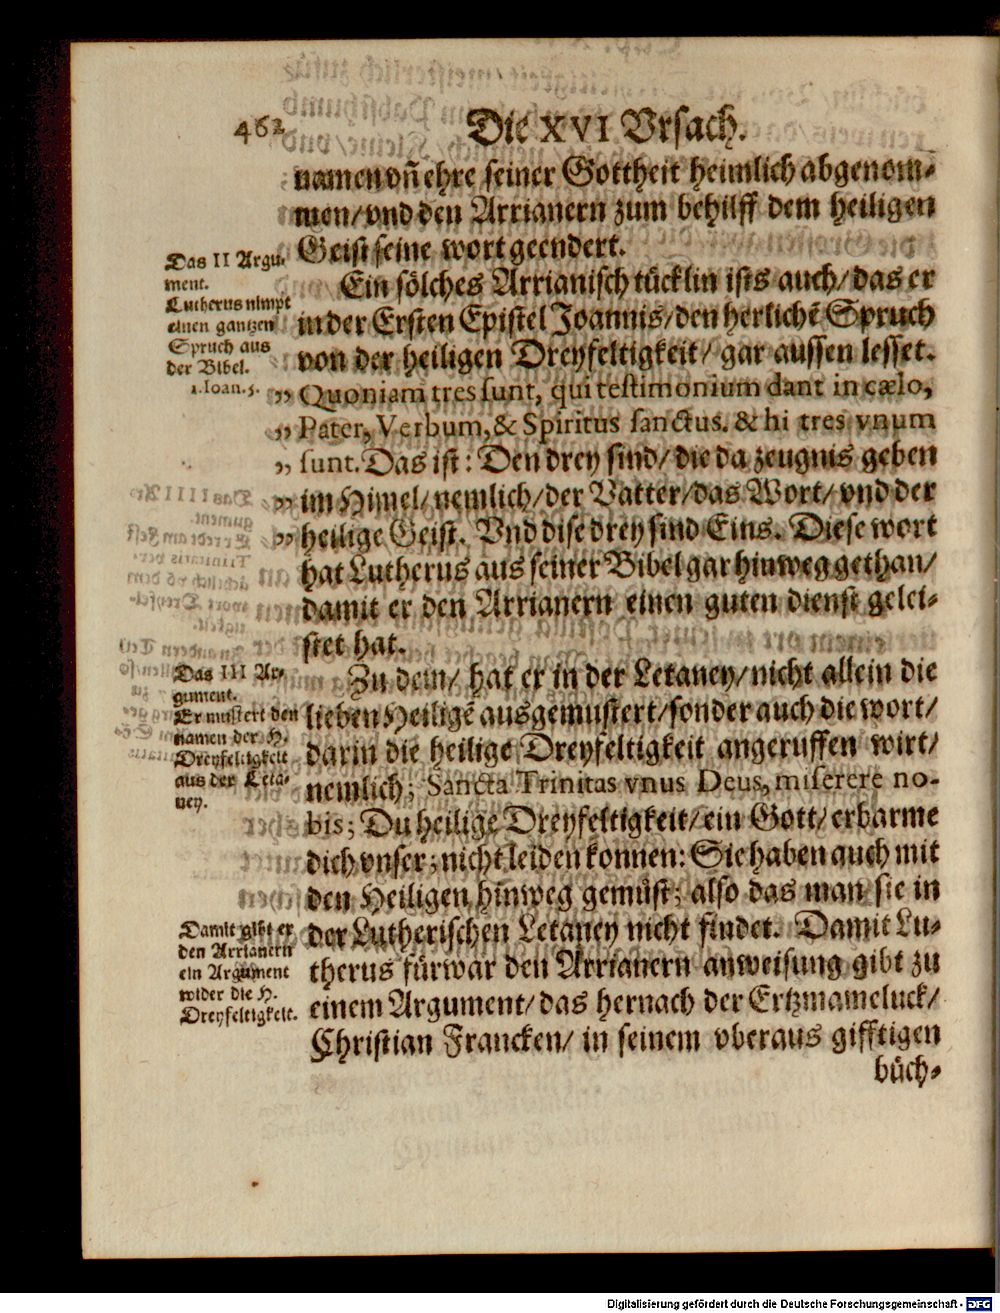 462 Die XVI Vrsach.
namen vñ ehre seiner Gottheit heimlich abgenom-
men/ vnd den Arrianern zum behilff dem heiligen
Geist seine wort geendert.
Das II Argu-
ment.
Lutherus nimpt
einen gantzen
Spruch aus
der Bibel.
1. Ioan. 5.
Ein sölches Arrianisch tücklin ists auch/ das er
in der Ersten Epistel Joannis/ den herlichẽ Spruch
von der heiligen Dreyfeltigkeit/ gar aussen lesset.
„ Quoniam tres sunt, qui testimonium dant in cælo,
„ Pater, Verbum, & Spiritus sanctus. & hi tres vnum
„ sunt. Das ist: Den drey sind/ die da zeugnis geben
„ im Himel/ nemlich/ der Vatter/ das Wort/ vnd der
„ heilige Geist. Vnd dise drey sind Eins. Diese wort
hat Lutherus aus seiner Bibel gar hinweg gethan/
damit er den Arrianern einen guten dienst gelei-
stet hat.
Das III Ar-
gument.
Er mustert den
namen der H.
Dreyfeltigkeit
aus der Leta-
ney.
Zu dem/ hat er in der Letaney/ nicht allein die
lieben Heiligẽ ausgemustert/ sonder auch die wort/
darin die heilige Dreyfeltigkeit angeruffen wirt/
nemlich; Sancta Trinitas vnus Deus, miserere no-
bis; Du heilige Dreyfeltigkeit/ ein Gott/ erbarme
dich vnser; nicht leiden konnen: Sie haben auch mit
den Heiligen hinweg gemüst; also das man sie in
der Lutherischen Letaney nicht findet. Damit Lu-
therus fürwar den Arrianern anweisung gibt zu
einem Argument/ das hernach der Ertzmameluck/
Christian Francken/ in seinem vberaus gifftigen
büch-
Damit gibt er
den Arrianern
ein Argument
wider die H.
Dreyfeltigkeit.
Digitalisierung gefördert durch die Deutsche Forschungsgemeinschaft - DFG